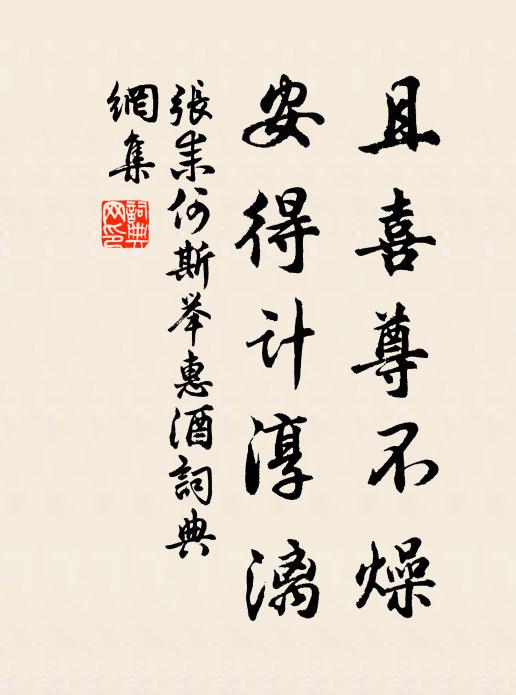 且喜尊不燥
安得计淳漓
張耒何斯举惠酒詞典
網集
詞典
网印